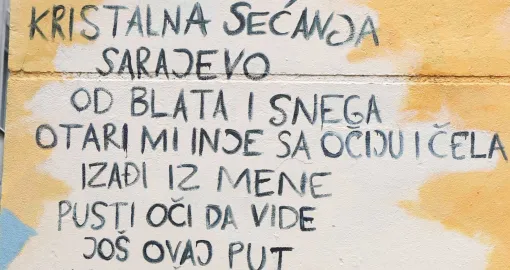 KRISTALNA SEĆANJA
SARAJEVO
OD BLATA I SNEGA
OTARI MI INJE SA OČIJU I ČELA
IZAĐI IZ MENE
PUSTI OČI DA VIDE
JOŠ OVAJ PUT